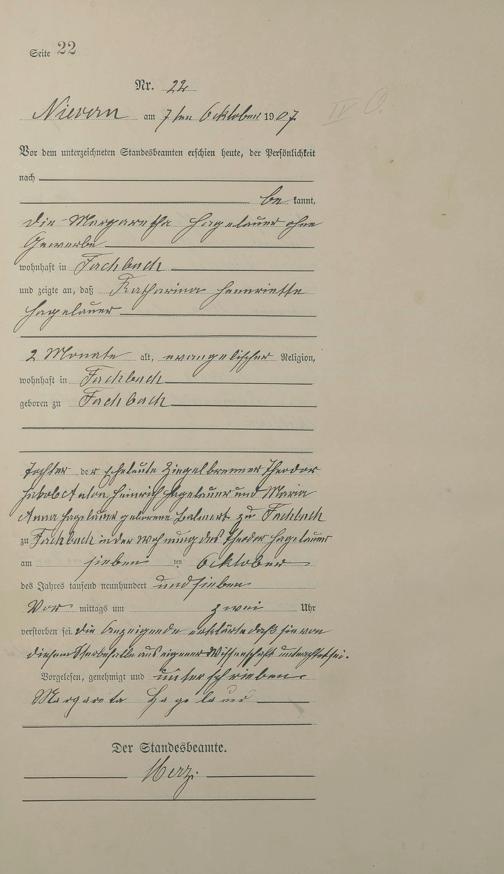 Seite 22
Nr. 22
Nievern am 7ten Oktober 1907.
Vor dem unterzeichneten Standesbeamten erschien heute, der Persönlichkeit
nach
be kannt,
die Margaretha Hagelauer ohne
Gewerbe
wohnhaft in Fachbach
und zeigte an, daß Katharina Henriette
Hagelauer
2 Monate alt, evangelischer Religion,
wohnhaft in Fachbach
geboren zu Fachbach
Tochter der Eheleute Ziegelbrenner Theodor
Jakob Anton Heinrich Hagelauer und Maria
Anna Hagelauer geborene zu Fachbach
zu Fachbach in der Wohnung des Theodor Hagelauer
am sieben ten Oktober
des Jahres tausend neunhundert und sieben
Vor mittags um zwei Uhr
verstorben sei. Die Anzeigende erklärte daß sie von
diesem Sterbefalle aus eigener Wissenschaft unterrichtet sei.
Vorgelesen, genehmigt und unterschrieben.
Margareta Hagelauer
Der Standesbeamte.
Merz.